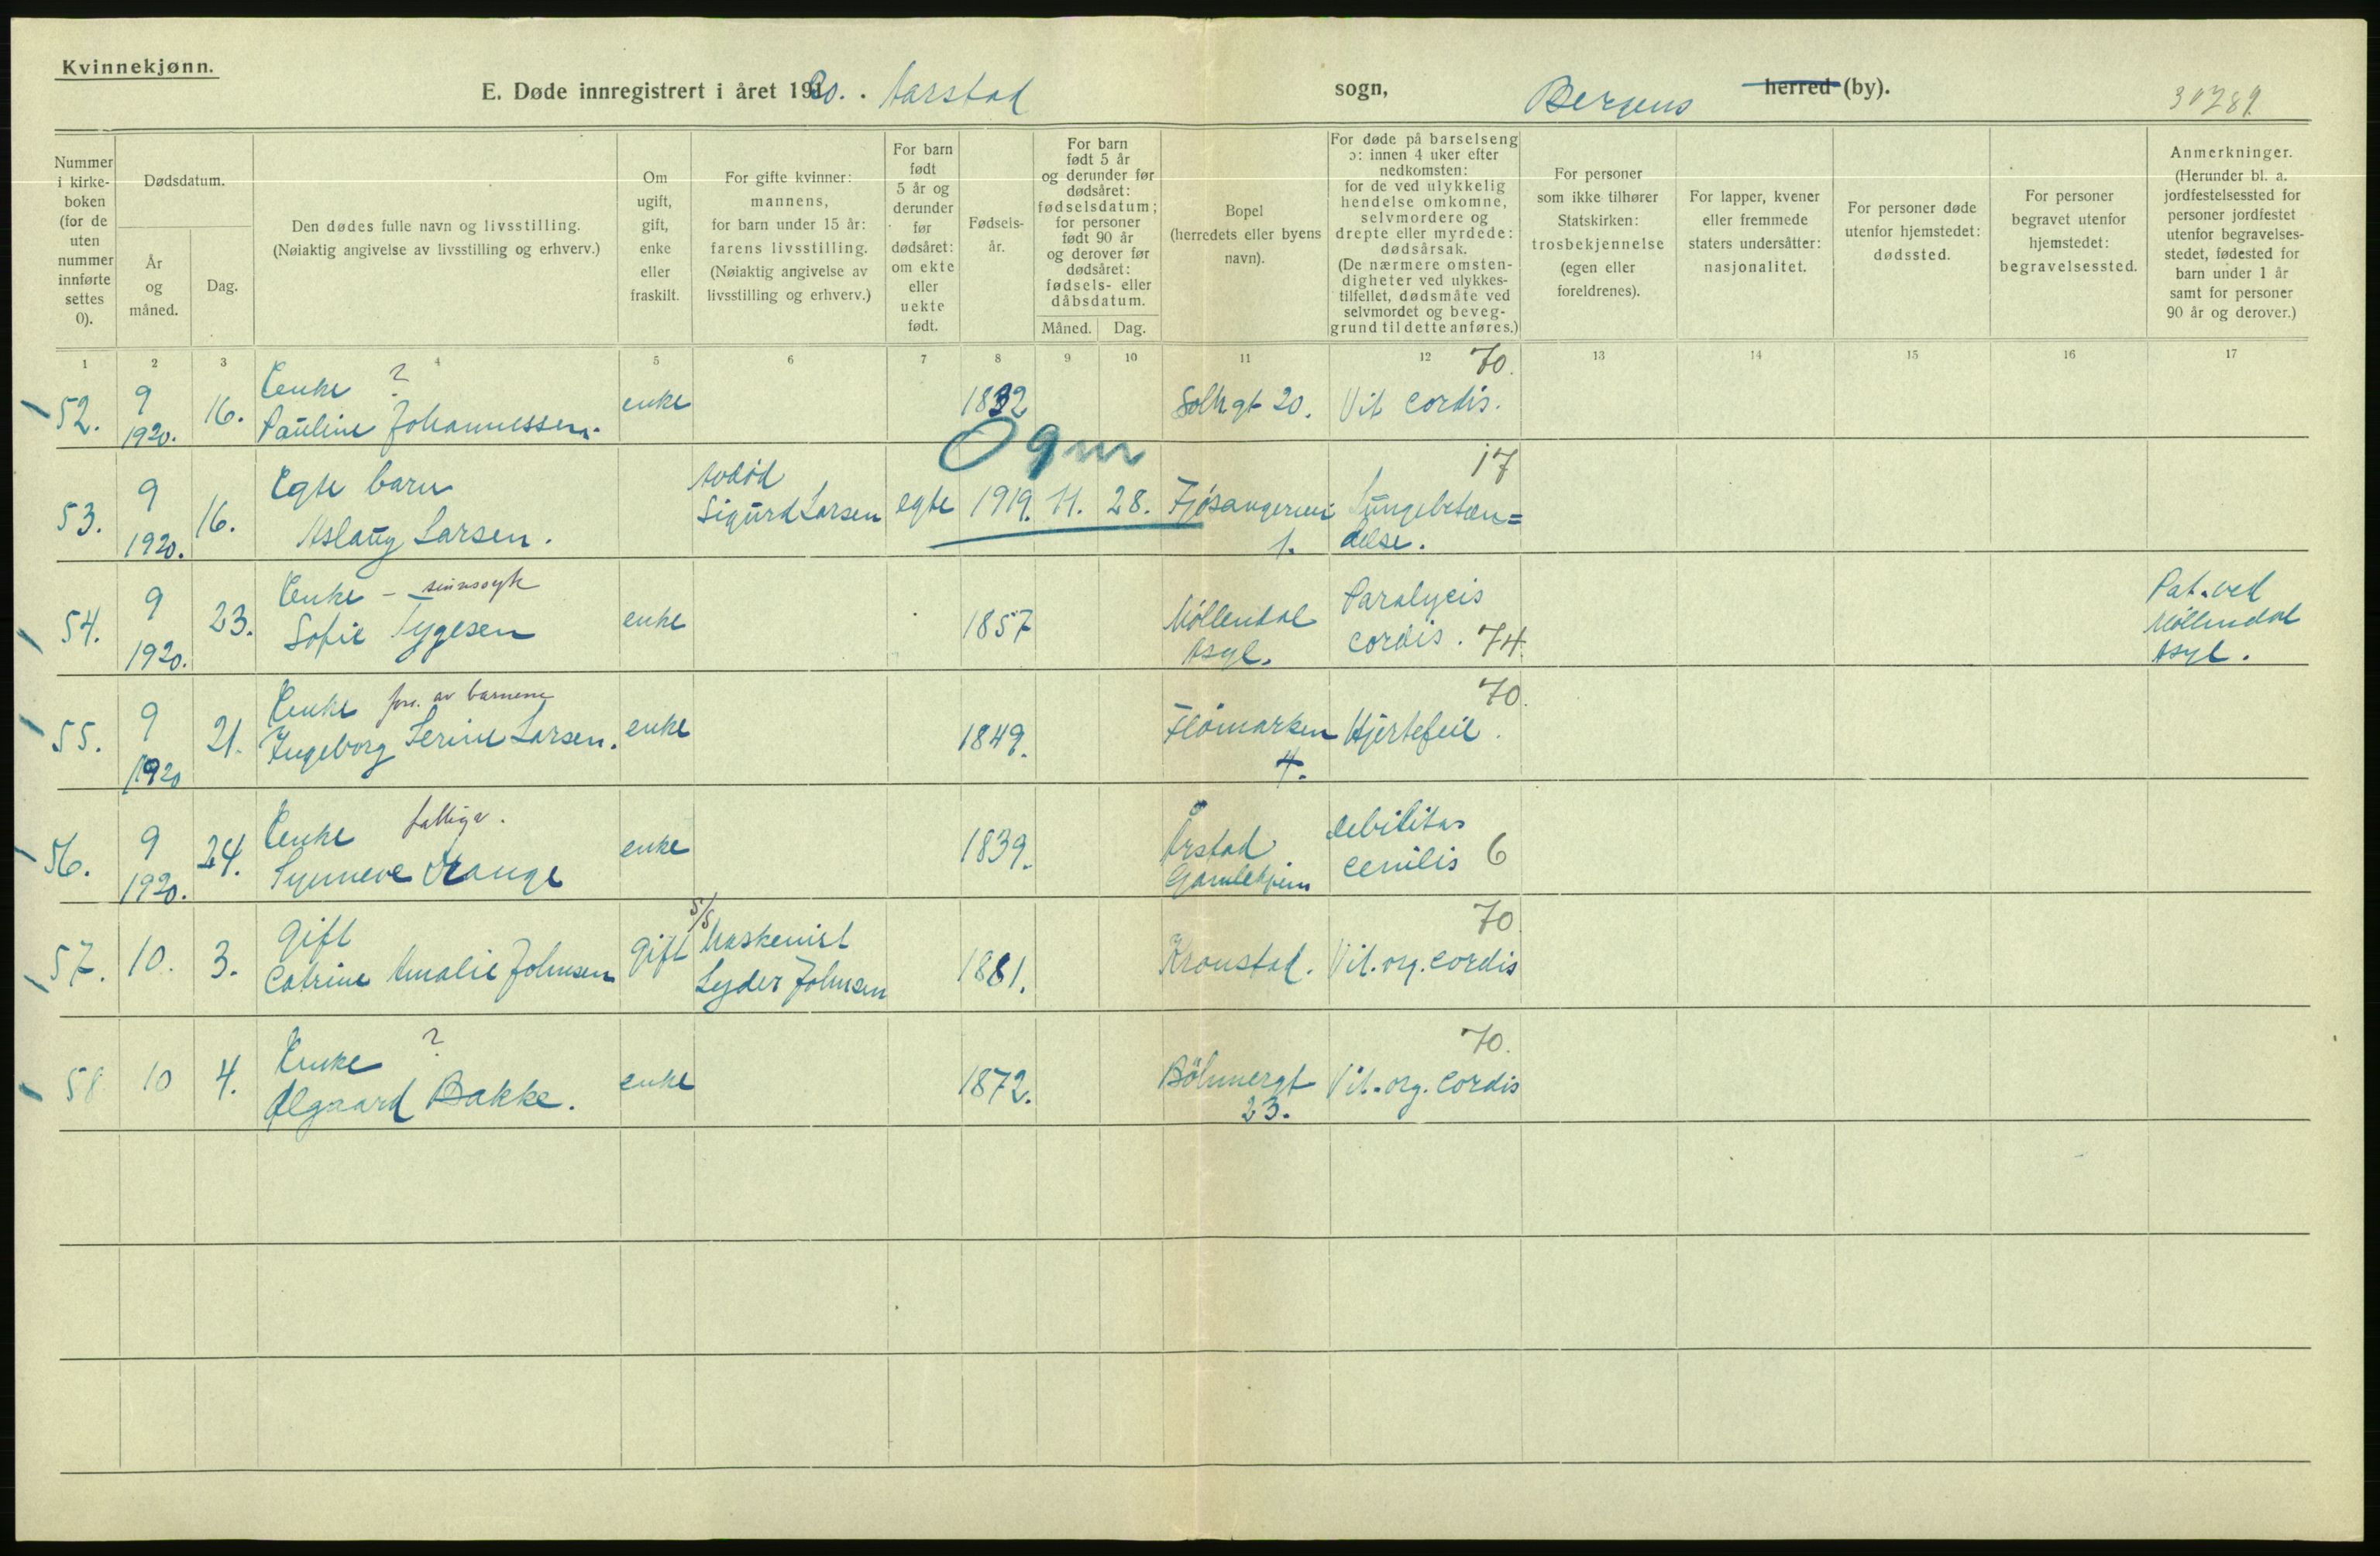 Kvinnekjønn.
E. Døde innregistrert i året 1920. Aarstad sogn, Bergens herred (by). 30789
Nummer i kirke-boken (for de uten nummer innførte settes 0).
Dødsdatum.
År og måned.
Dag.
Den dødes fulle navn og livsstilling.
(Nøiaktig angivelse av livsstilling og erhverv.)
Om ugift, gift, enke eller fraskilt.
For gifte kvinner: mannens, for barn under 15 år: farens livsstilling.
(Nøiaktig angivelse av livsstilling og erhverv.)
For barn født 5 år og derunder før dødsåret: om ekte eller uekte født.
Fødsels-år.
For barn født 5 år og derunder før dødsåret: fødselsdatum; for personer født 90 år og derover før dødsåret: fødsels- eller dåbsdatum.
Måned. Dag.
Bopel (herredets eller byens navn).
For døde på barselseng ɔ: innen 4 uker efter nedkomsten: for de ved ulykkelig hendelse omkomne, selvmordere og drepte eller myrdede: dødsårsak.
(De nærmere omsten-digheter ved ulykkes-tilfellet, dødsmåte ved selvmordet og beveg-grund til dette anføres.)
For personer som ikke tilhører Statskirken: trosbekjennelse (egen eller foreldrenes).
For lapper, kvener eller fremmede staters undersåtter: nasjonalitet.
For personer døde utenfor hjemstedet: dødssted.
For personer begravet utenfor hjemstedet: begravelsessted.
Anmerkninger.
(Herunder bl. a. jordfestelsessted for personer jordfestet utenfor begravelses-stedet, fødested for barn under 1 år samt for personer 90 år og derover.)
1 2 3 4 5 6 7 8 9 10 11 12 13 14 15 16 17
Enke ? 70.
52. 9 1920. 16. Pauline Johannessen. enke 1832 Solhgt 20. Vit cordis.
0 9 m
Egte barn 17
53. 9 1920. 16. Aslaug Larsen. Sigurd Larsen egte 1919. 11. 28. Fjøsangervei 1. Lungebetæn=delse.
Enke - sinnssyk
54. 9 1920. 23. Sofie Tygesen enke 1857 Møllendal Asyl. Paralycis cordis. 74. Pat. ved Møllendal Asyl.
Enke fors. av barnene 70.
55. 9 1920 21. Ingeborg Serine Larsen. enke 1849. Flomarken 4. Hjertefeil.
Enke fattigv.
56. 9 1920. 24. Synneve Mange enke 1839. Årstad Gamlehjem debilitas cenilis 6
Gift 70
57. 10. 3. Catrine Amalie Johnsen gift S/S Maskenist Lyder Johnsen 1881. Kronstad. Vit. org. cordis
Enke ? 70.
58 10 4. Olgaard Bakke. enke 1872. Böhmergt 23. Vit. org. cordis